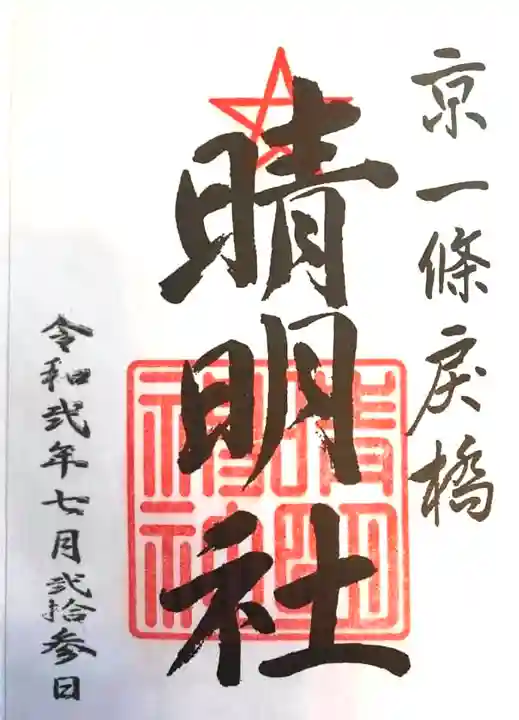 京一條戻橋
晴明社
晴明神社
令和弐年七月弐拾参日